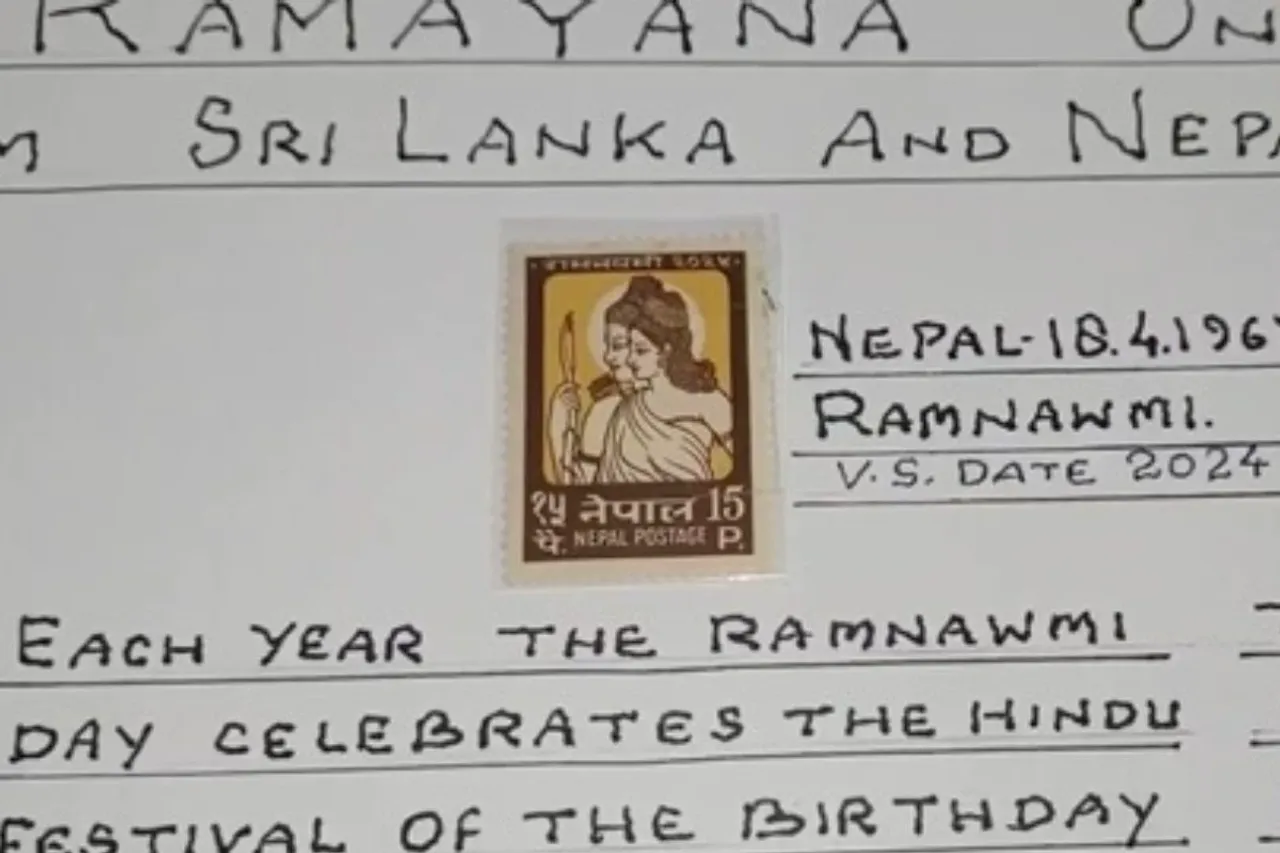 RAMAYANA ON
SRI LANKA AND NEPA
रामनवमी २०२४
NEPAL-18.4.196
RAMNAWMI.
V.S. DATE 2024
१५ नेपाल 15
पै. NEPAL POSTAGE P.
EACH YEAR THE RAMNAWMI
DAY CELEBRATES THE HINDU
FESTIVAL OF THE BIRTHDAY